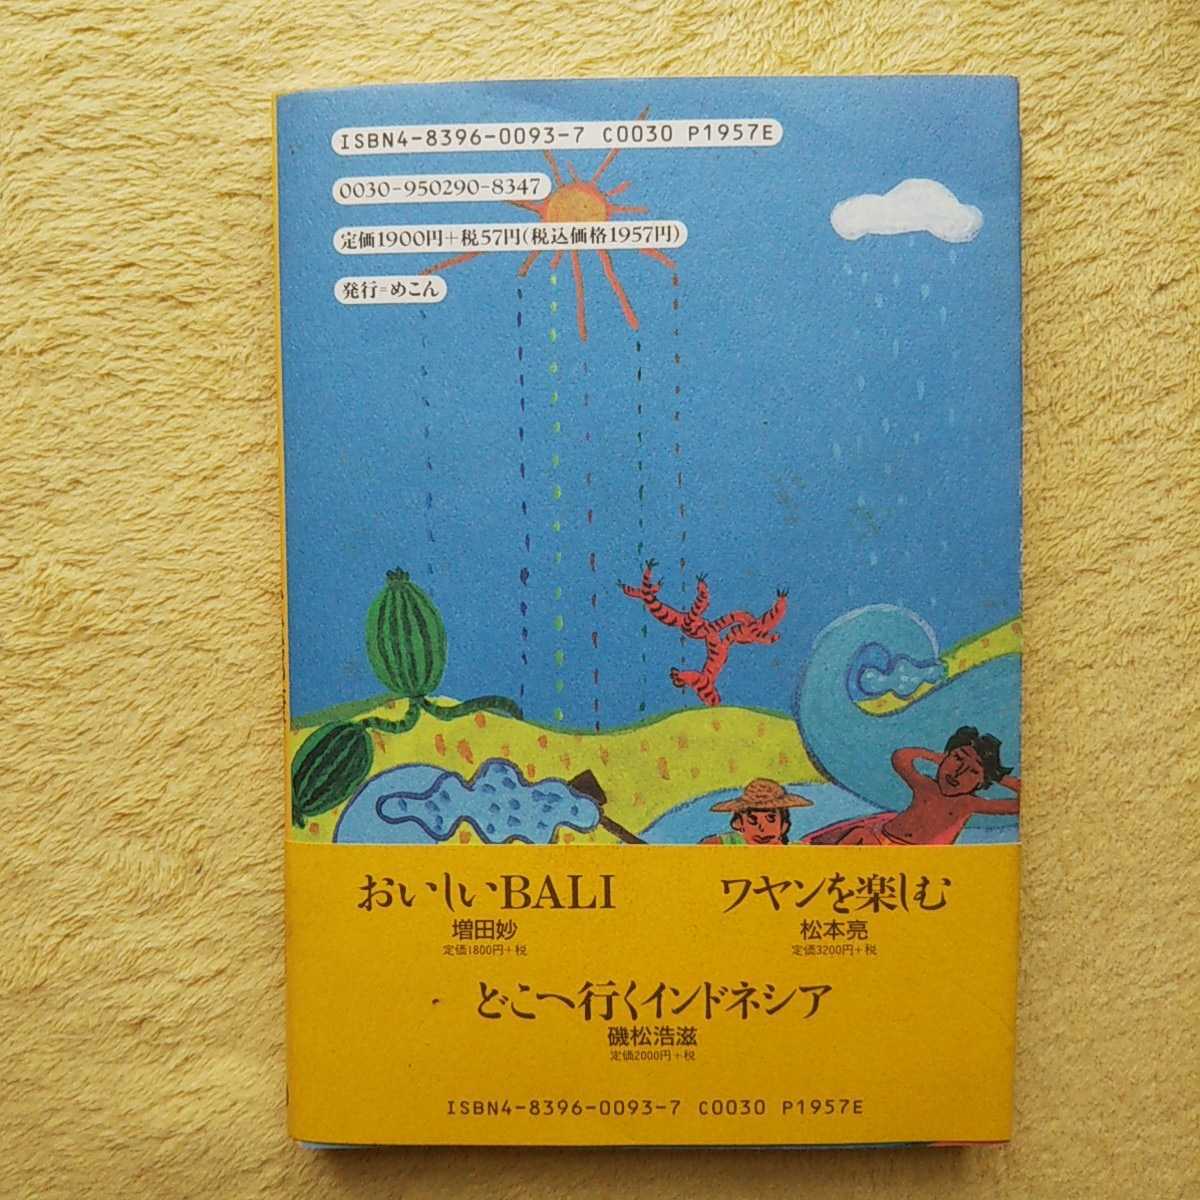 ISBN4-8396-0093-7 C0030 P1957E
0030-950290-8347
定価1900円+税57円(税込価格1957円)
発行=めこん
おいしいBALI
増田妙
定価1800円+税
ワヤンを楽しむ
松本亮
定価3200円+税
どこへ行くインドネシア
磯松浩滋
定価2000円+税
ISBN4-8396-0093-7 C0030 P1957E